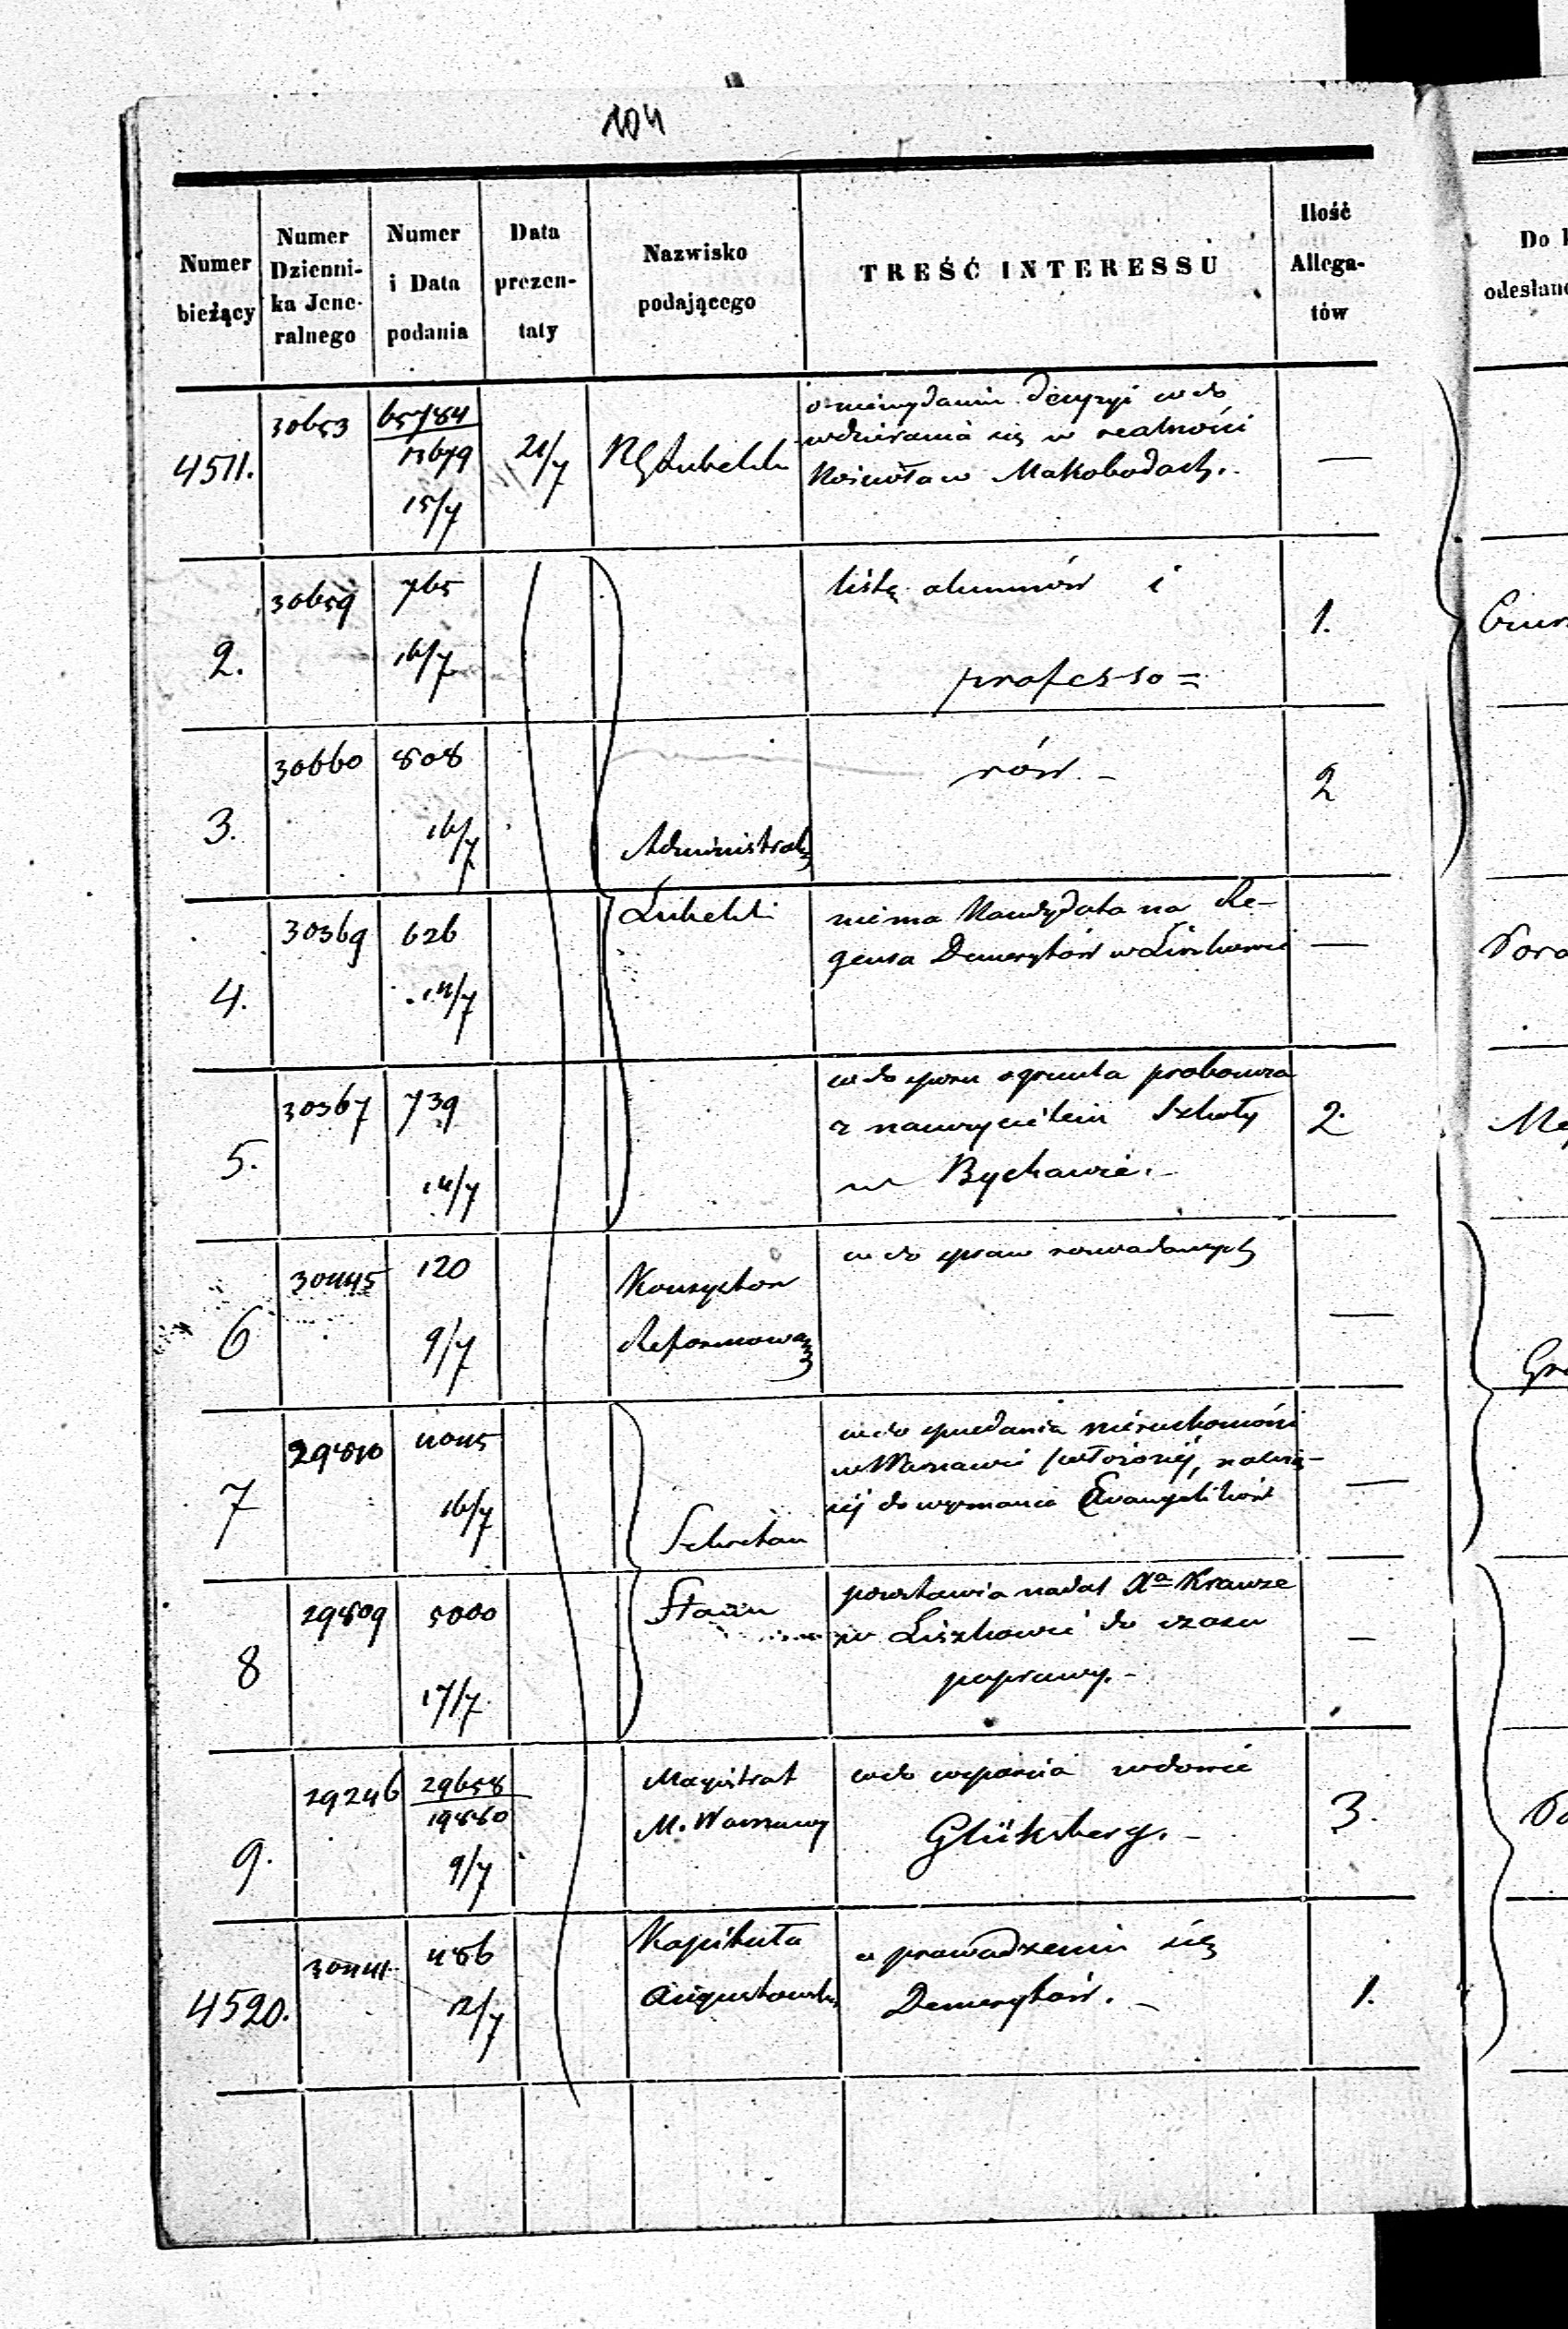 104
Numer bieżący
Numer Dzienni-ka Jene-ralnego
Numer i Data podania
Data prezen-taty
Nazwisko podającego
TREŚĆ INTERESSU
Ilość Allega-tów
Do
odesłano
4511.
30653
65784
13679
15/7
21/7
RG Lubelski
o niewydaniu decyzyi wdo
wdzierania się w realności
Kościoła w Makobodach.
—
2.
30659
765
16/7
listę alumnów i
professo=
1.
3.
30660
808
16/7
Administrat
rów. -
2
4.
30369
626
14/7
Lubelski
niema Kandydata na Re-
gensa Demerytów w Liszkowie
—
5.
30367
739
14/7
wdo sporu o grunta proboszcza
z nauczycielem Szkoły
w Bychawie. -
2.
6
30445
120
9/7
Konsystor
Reformowa
wdo spraw rozwodowych
—
7
29810
4045
16/7
Sekretarz
wdo sprzedania nieruchomości
w Warszawie położonej, należą-
cej do wyznania Ewangelików
—
8
29809
5000
17/7
Stanu
pozostawia nadal Xa Krauze
w Liszkowie do czasu
poprawy. -
—
9.
29246
29658
19880
9/7
Magistrat
M. Warszawy
wdo wsparcia wdowie
Glüksberg. -
3.
4520.
30441
486
12/7
Kapituła
Augustowska
o prowadzeniu się
Demerytów. -
1.